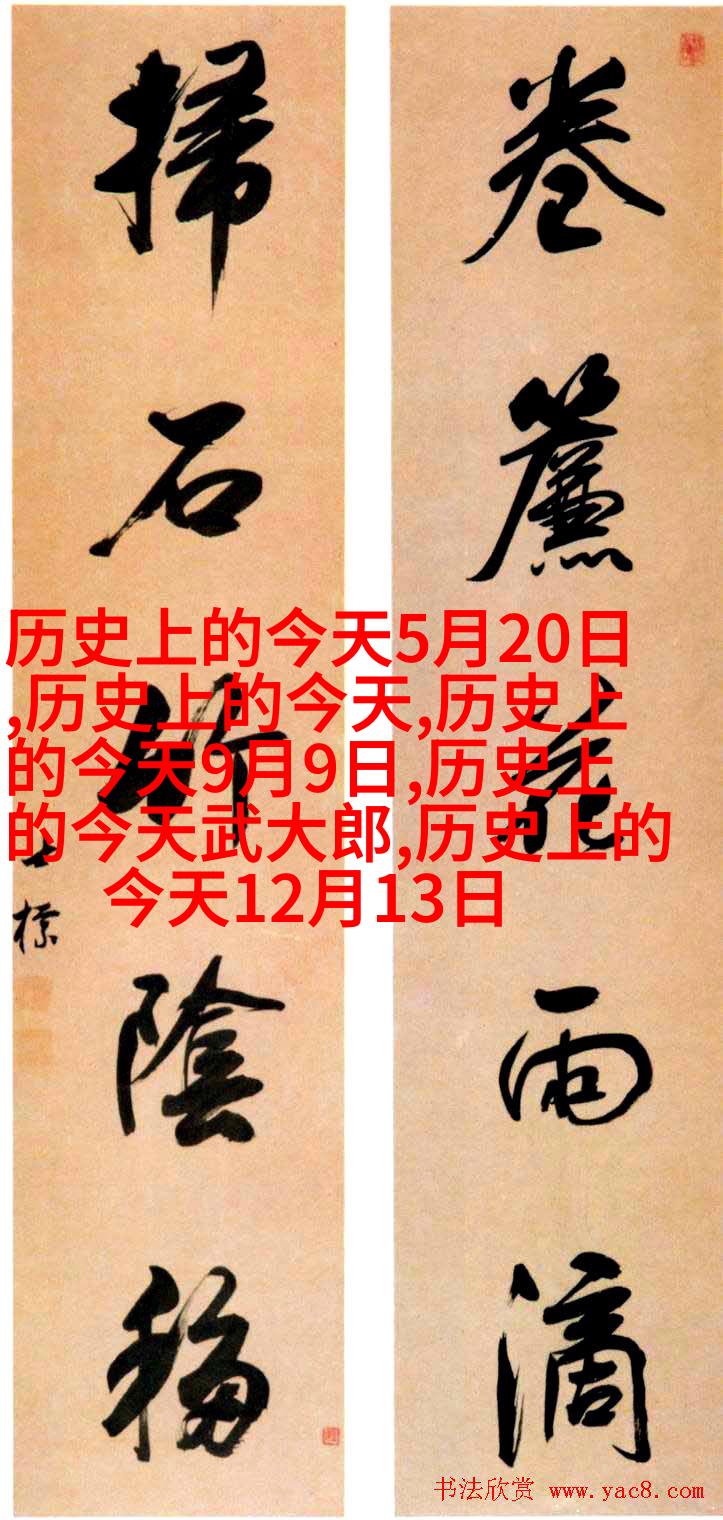 卷簾花雨滴
掃石竹陰移
士標
历史上的今天5月20日
,历史上的今天,历史上
的今天9月9日,历史上
的今天武大郎,历史上的
今天12月13日
书法欣赏 www.yac8.com